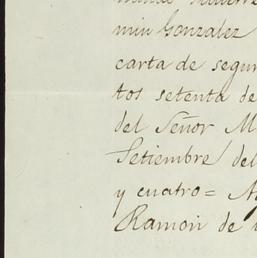 min Gonzalez
carta de segur
tos setenta de
del Señor M
Setiembre del
y cuatro = A
Ramon de